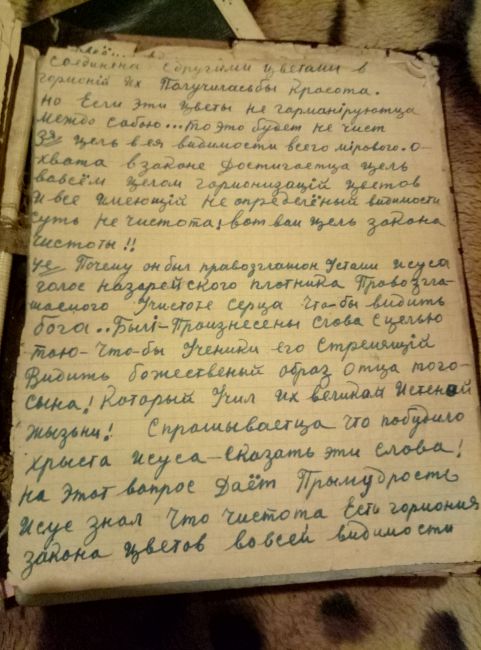 соединена с другими цветами в
гормоніи их Получиласьбы Красота.
но Если эти цветы не гарманіруютца
Между сабою... то это будет не чист
3я цель в ея видимости всего мірового. О-
хвата в законе Достигаетца цель
вовсём целом гормонизацій цветов
И все имеющій не определёный видимости
Суть не чистота; вот вам цель закона
чистоты!!
Почему он был правозглашон Устами Исуса
голос назарейского плотника Правозгла-
шаемого Учистоте серца Что-бы видить
бога.. Былі-Произнесены слова С целью
тою-что-бы Ученики его Стремящій
Видить божественый образ отца того-
сына! Каторый Учил Их великай Истеной
жызьни! Спрашываетца что побудило
хрыста исуса-Сказать эти слова!
на Этот вопрос Даёт Прымудрость
Исус знал Что чистота Есть гормония
закона цветов вовсей видимости